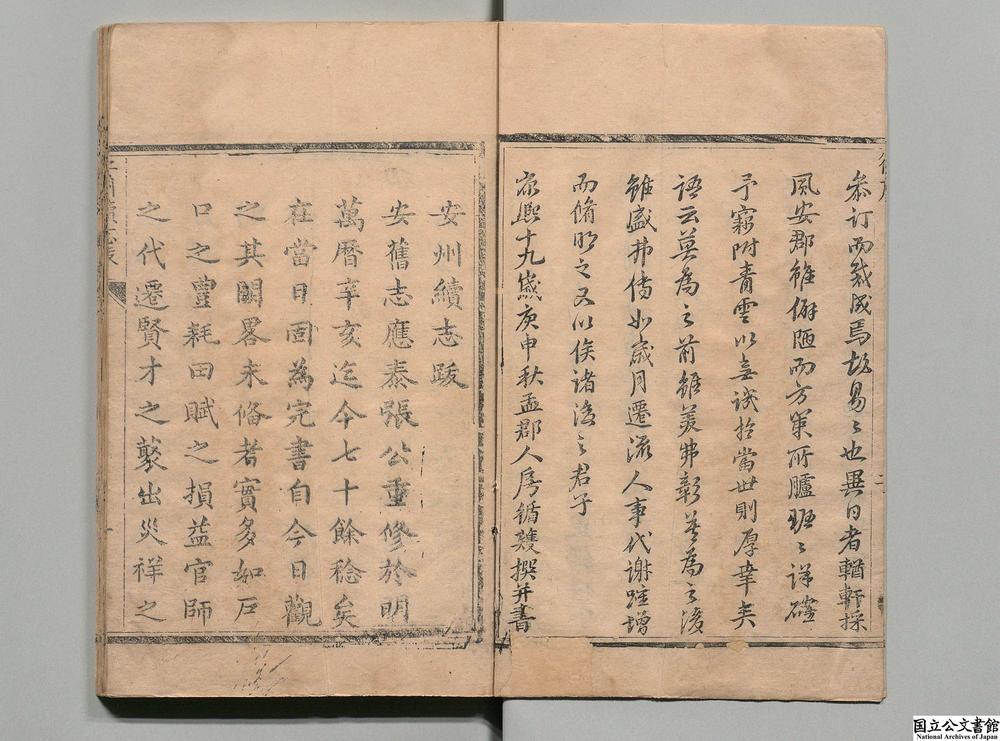 叅订而裁成焉故易易也異日者輶軒採
風安郡雖僻陋而方策所臚班班详確
予竊附青雲以志識於當世則厚幸矣
语云莫為之前雖美弗彰莫為之後
雖盛弗傳如歲月遷流人事代謝踵增
而脩明之又以俟诸後之君子
康熙十九歲庚申秋孟郡人房循矱撰并書
安州續志跋
安舊志應泰張公重修於明
萬曆辛亥迄今七十餘稔矣
在當日固為完書自今日觀
之其闕畧未脩者實多如戸
口之豊耗田賦之損益官師
之代遷賢才之蒸出災祥之
国立公文書館
National Archives of Japan